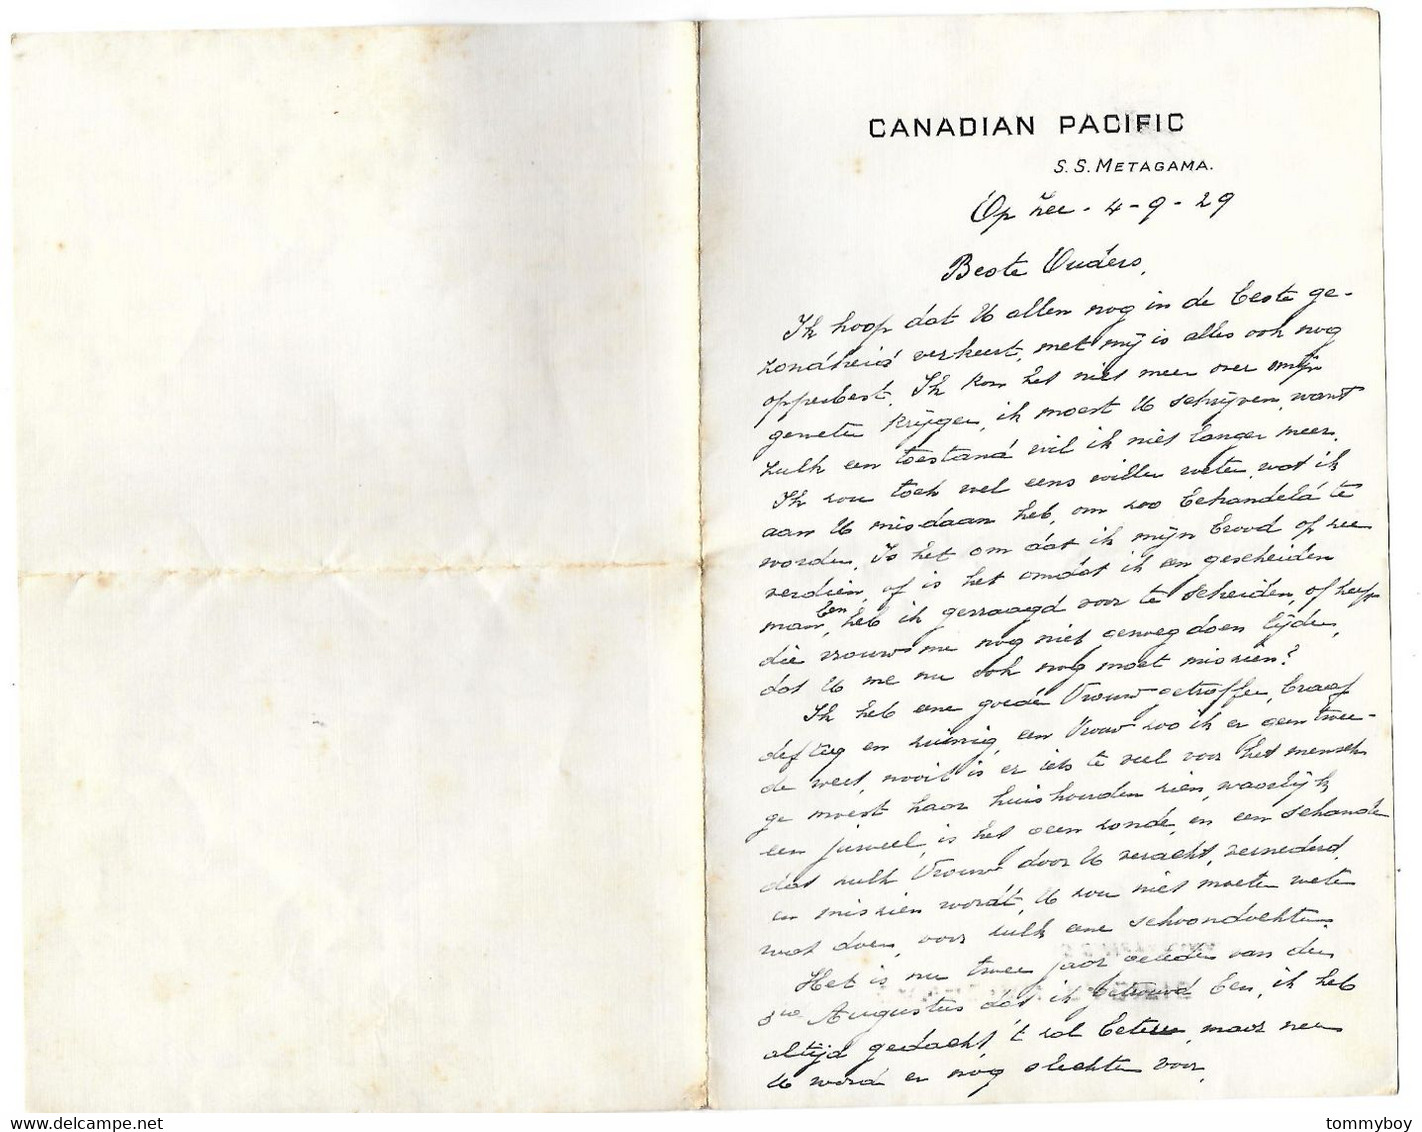 CANADIAN PACIFIC
S. S. METAGAMA.
Op Zee - 4 - 9 - 29
Beste Ouders,
Ik hoop dat U allen nog in de beste ge-
zondheid verkeert, met mij is alles ook nog
opperbest. Ik kon het niet meer over mijn
geweten krijgen, ik moest U schrijven, want
zulk een toestand wil ik niet langer meer.
Ik zou toch wel eens willen weten, wat ik
aan U misdaan heb, om zoo behandeld te
worden. Is het om dat ik mijn brood op zee
verdien, of is het omdat ik een gescheiden
man ben, heb ik gevraagd voor te scheiden, of heeft
die vrouw me nog niet genoeg doen lijden,
dat U me nu ook nog moet miszien?
Ik heb ene goede Vrouw getroffen, braaf
deftig en zuinig, een Vrouw zoo ik er geen twee-
de weet, nooit is er iets te veel voor het mensch
ge moest haar huishouden zien, waarlijk
een juweel, is het geen zonde, en een schande
dat zulk Vrouw door U veracht, vernederd,
en miszien wordt, U zou niet moeten weten
wat doen, voor zulk ene schoondochter.
Het is nu twee jaar geleden van den
3den Augustus dat ik getrouwd ben, ik heb
altijd gedacht, 't zal beteren, maar neen
U word er nog slechter voor,
tommyboy